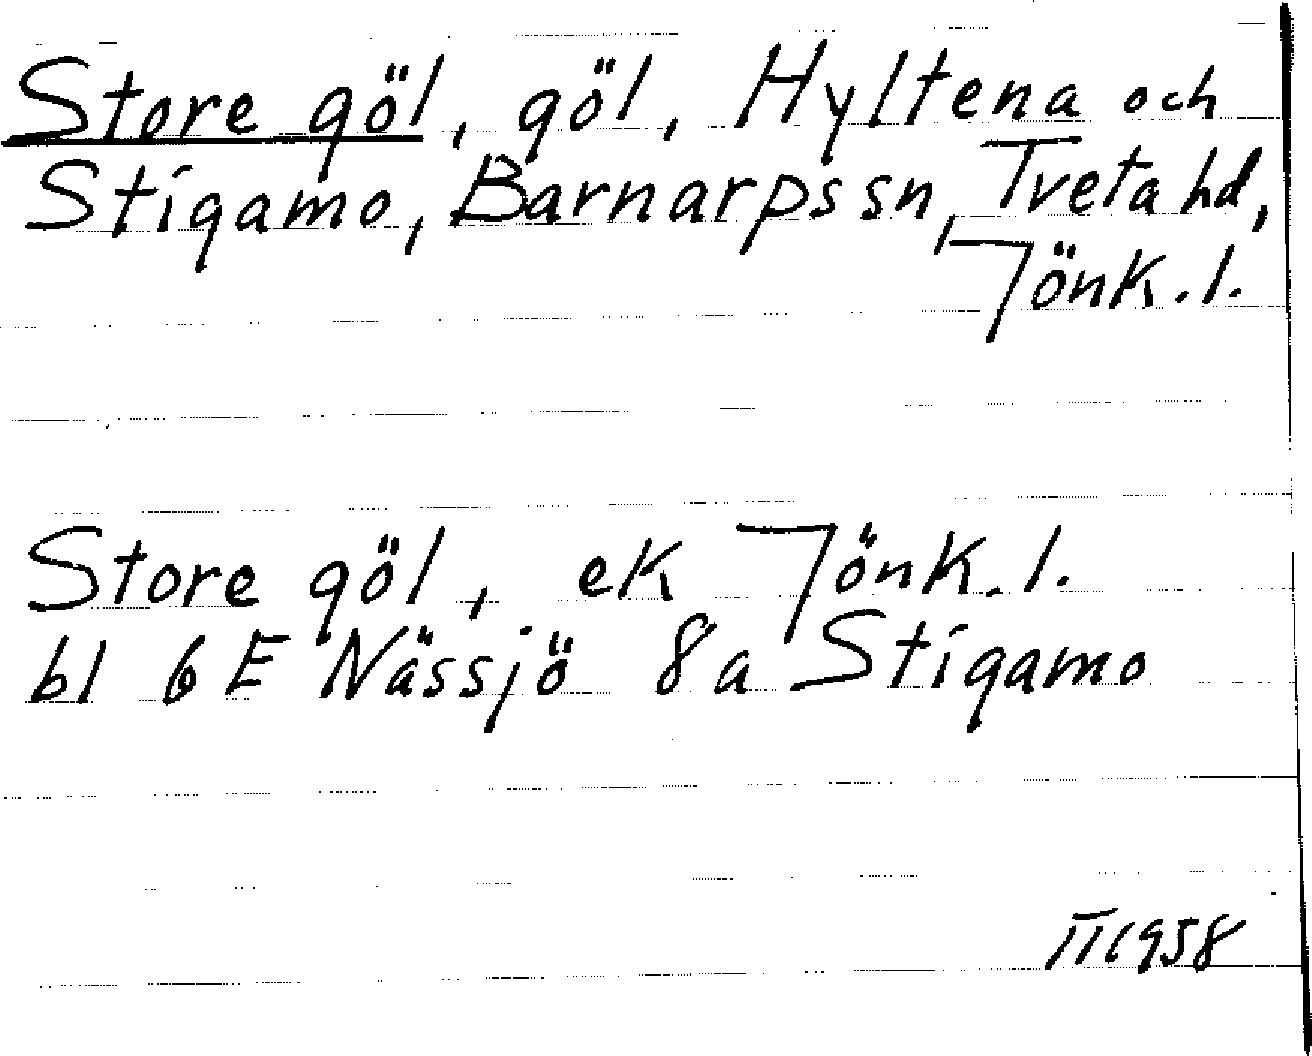 Store göl, göl, Hyltena och
Stigamo, Barnarps sn, Tveta hd,
Jönk.l.
Store göl, ek Jönk.l.
bl 6 E Nässjö 8a Stigamo
II 1958